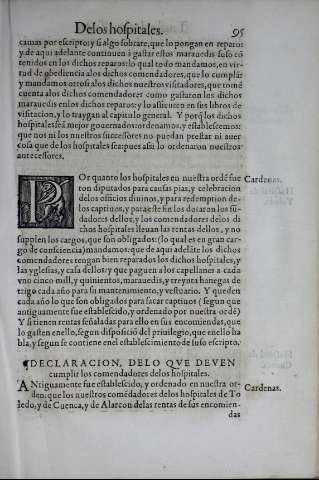 De los hospitales. 95
camas por escripto: y si algo sobrare, que lo pongan en reparos
y de aqui adelante continuen à gastar estos marauedis suso cō
tenidos en los dichos reparos: lo qual todo mandamos, en vir-
tud de obediencia alos dichos comendadores, que lo cumplā:
y mandamos otrosi alos dichos nuestros visitadores, que tomē
cuenta alos dichos comendadores como gastaron los dichos
marauedis enlos dichos reparos: y lo assienten en sus libros de
visitacion, y lo traygan al capitulo general. Y porq̄ los dichos
hospitales seā mejor gouernados: ordenamos, y establescemos:
que nos ni los nuestros successores no puedan prestar ni auer
cosa que de los hospitales sea: pues assi lo ordenaron nuestros
antecessores.
POr quanto los hospitales en nuestra ordē fue Cardenas.
ron diputados para causas pias, y celebracion
delos officios diuinos, y para redemption de-
los captiuos, y para este fin los dotaron los fū-
dadores dellos: y los comendadores delos di
chos hospitales lleuan las rentas dellos, y no
supplen los cargos, que son obligados: (lo qual es en gran car-
go de consciencia) mandamos: que de aqui adelāte los dichos
comendadores tengan bien reparados los dichos hospitales, y
las yglesias, y casa dellos: y que paguen a los capellanes a cada
vno cinco mill, y quinientos, marauedis, y treynta hanegas de
trigo cada año para su mantenimiento, y vestuario. Y que den
cada año lo que son obligados para sacar captiuos (segun que
antiguamente fue establescido, y ordenado por nuestra ordē)
Y si tienen rentas señaladas para ello en sus encomiendas, que
lo gasten enello, segun disposiciō del priuilegio, que enello ha
bla, y segun se contiene enel establescimiento de suso escripto.
¶DECLARACION, DELO QVE DEVEN
cumplir los comendadores delos hospitales.
ANtiguamente fue establescido, y ordenado en nuestra or- Cardenas.
den: que los nuestros comēdadores delos hospitales de To
ledo, y de Cuenca, y de Alarcon delas rentas de sus encomien-
das